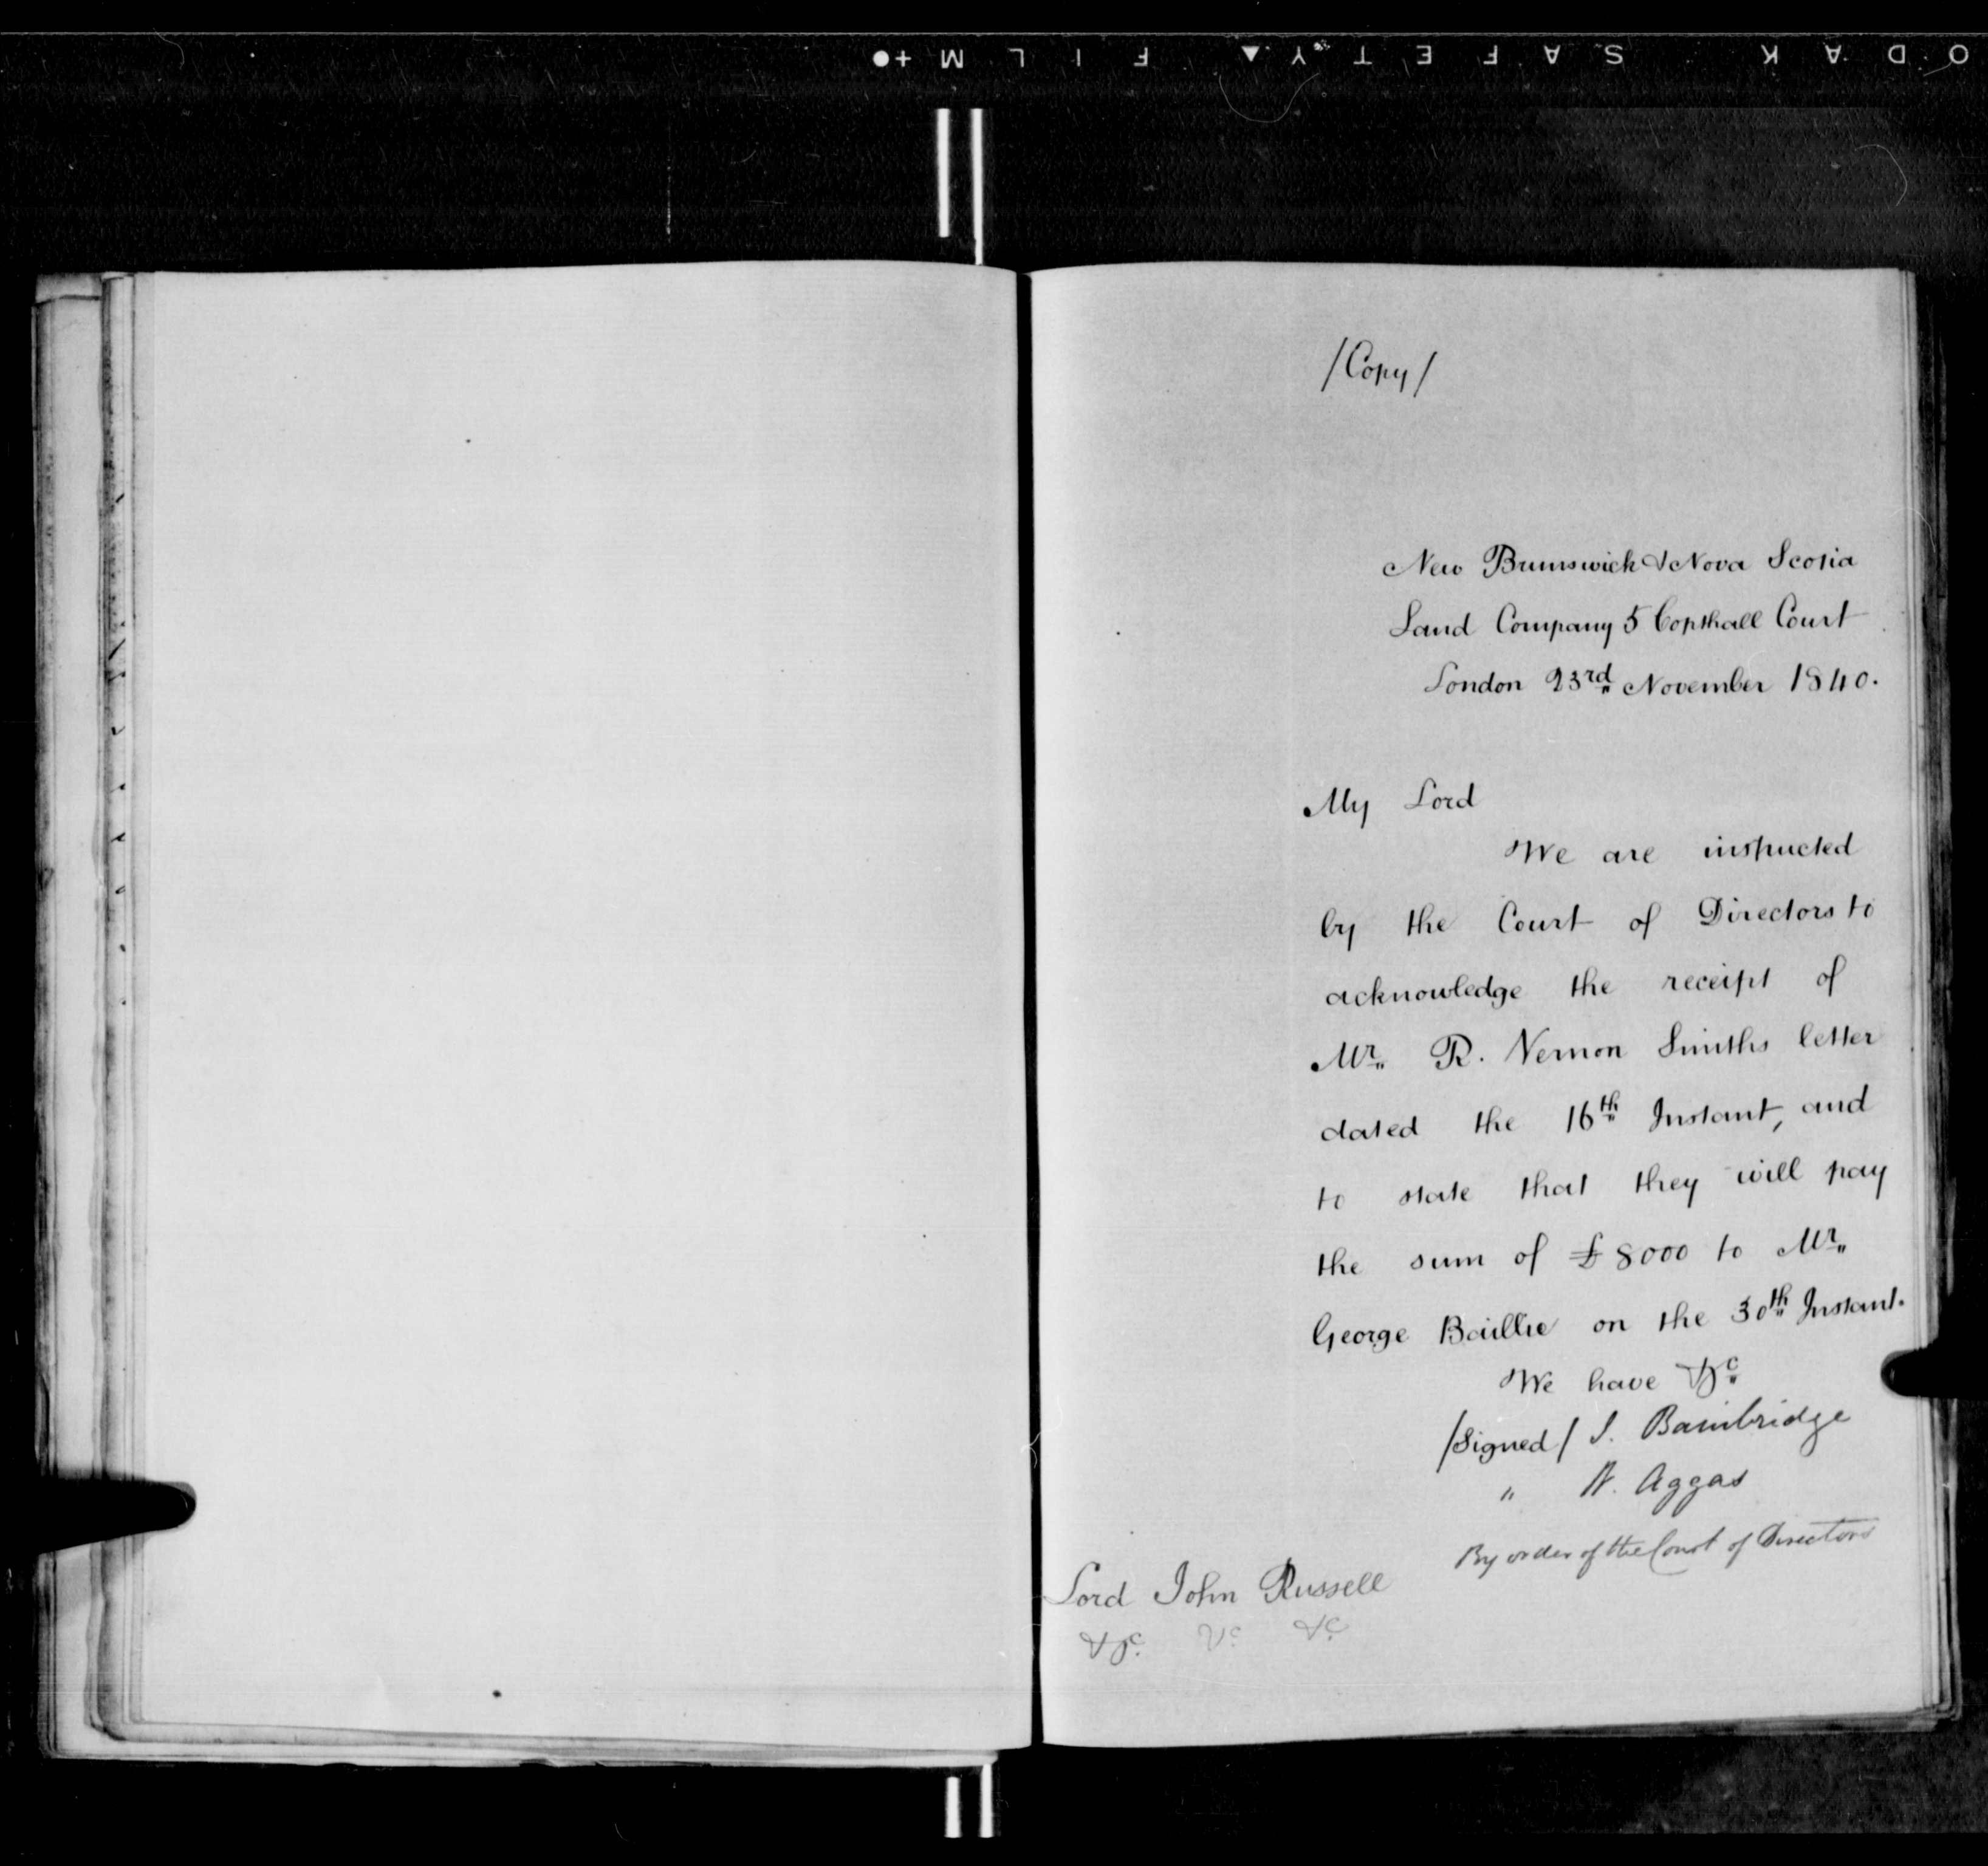 KODAK SAFETY FILM
/Copy/
New Brunswick & Nova Scotia
Land Company 5 Copthall Court
London 23rd November 1840.
My Lord
We are instructed
by the Court of Directors to
acknowledge the receipt of
Mr. R. Vernon Smiths letter
dated the 16th Instant, and
to state that they will pay
the sum of £8000 to Mr.
George Baillie on the 30th Instant.
We have &c
/Signed/ J. Bainbridge
" Aggas
By order of the Court of Directors
Lord John Russell
&c. &c. &c.